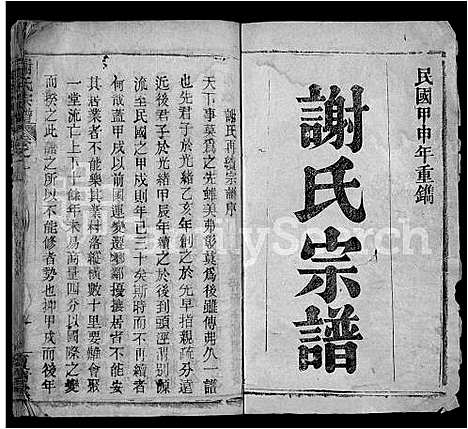 民國甲申年重鐫
謝氏宗譜
謝氏再續宗譜序
天下事莫為之先雖美弗彰莫為後雖傳弗久一譜
也先君子於光緒乙亥年創之於先早招親疏分遠
近後君子於光緒甲辰年續之於後到頭逕渭別源
流至民國之甲戍則年已三十矣斯時而不再續者
何哉蓋甲戍以前國運變遷鄰鄰擾攘居者不能安
其居業者不能樂其業村落縱橫數十里要難會聚
一堂流亡上下十餘年未易商量四分以國際之變
而族之此譜之所以不能修者勢也抑甲戍而後年
FamilySearch